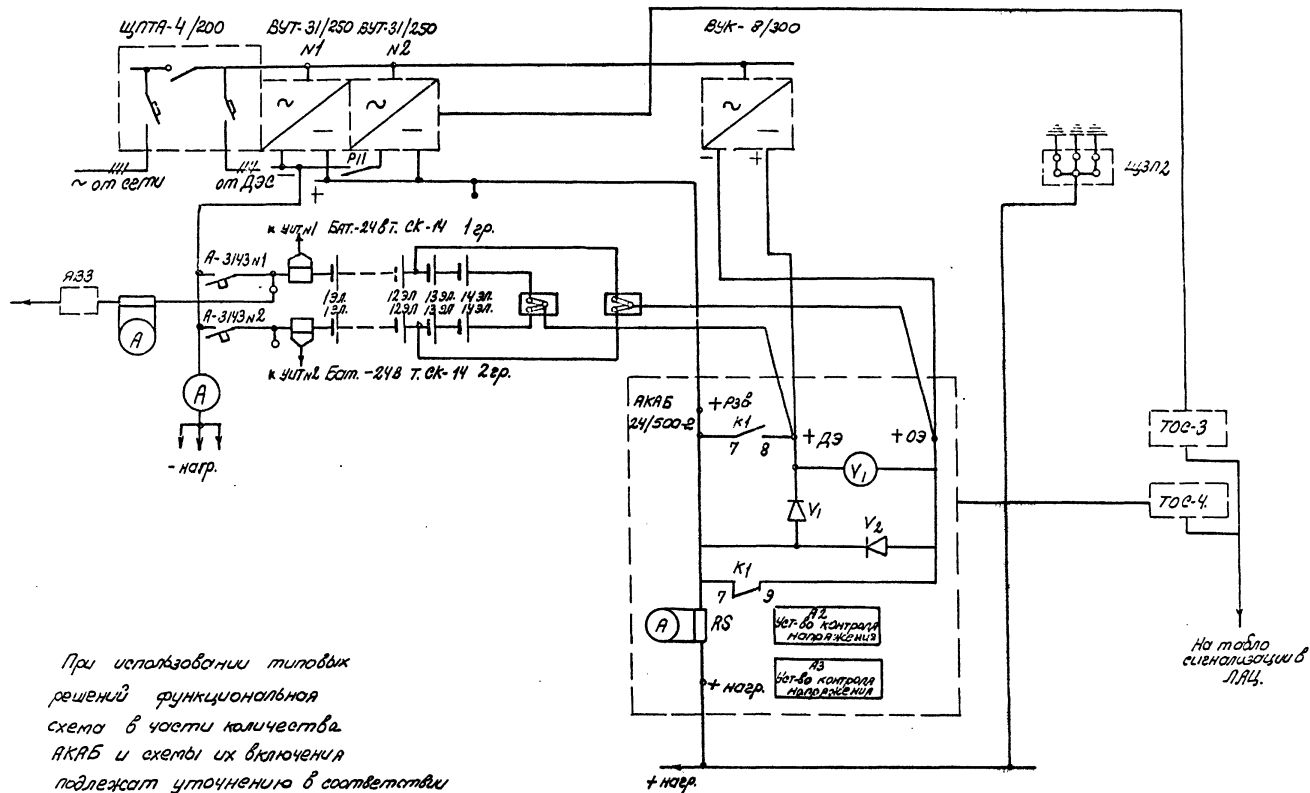 ЩПТА-4/200
ВУТ-31/250 ВУТ-31/250
N1 N2
ВУК-8/300
~ ~ ~
Р11
~ от сети
от ДЭС
- +
ЩЗП2
к УИТ N1 Бат.-24в т. СК-14 1 гр.
А-3143 N1
ЯЗЗ
1 эл. 12 эл 13 эл. 14 эл.
1 эл. 12 эл 13 эл 14 эл.
А
А-3143 N2
к УИТ N2 Бат. -24в т. СК-14 2 гр.
А
- нагр.
АКАБ
24/500-2
+ РЗВ
К1
7 8
+ ДЭ
+ ОЭ
V1
V1
V2
К1
7 9
А
RS
А2
Уст-во контроля
напряжения
А3
Уст-во контроля
напряжения
+ нагр.
+ нагр.
ТОС-3
ТОС-4.
На табло
сигнализации в
ЛАЦ.
При использовании типовых
решений функциональная
схема в части количества
АКАБ и схемы их включения
подлежат уточнению в соответствии